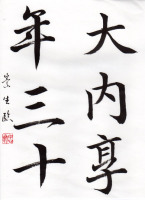 大内享
年三十
生臨